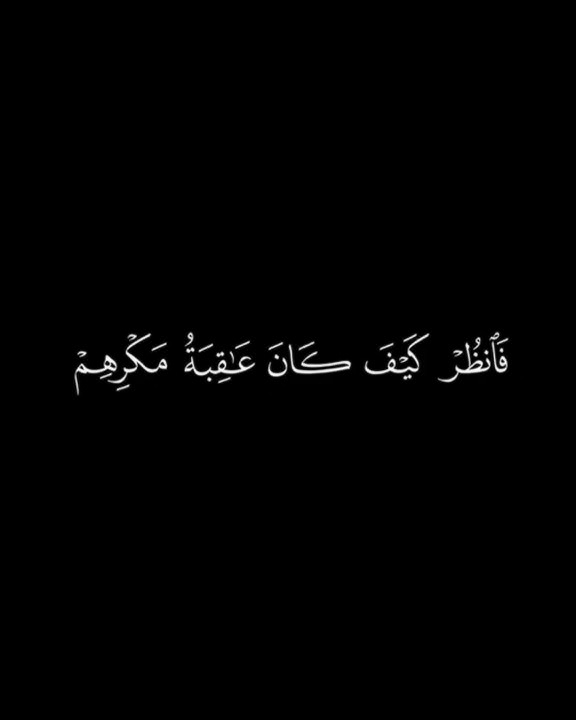 فَٱنظُرۡ كَيۡفَ كَانَ عَٰقِبَةُ مَكۡرِهِمۡ